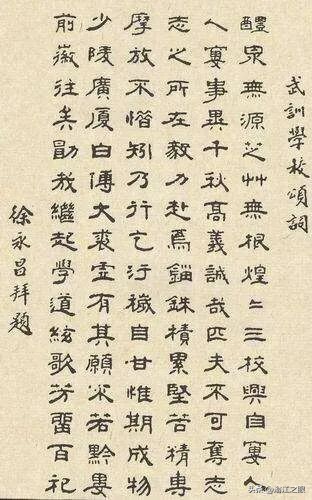 武訓學校頌詞
醴泉無源芝艸無根煌〻三校興自窶人
人窶事異千秋高義誠哉匹夫不可奪志
志之所在毅力赴焉錙銖積累堅苦精專
摩放不惜矧乃行乞汙穢自甘惟期成物
少陵廣厦白傅大裘虛有其願不若黔婁
前徽往矣勖我繼起學道絃歌芳畱百祀
徐永昌拜題
头条